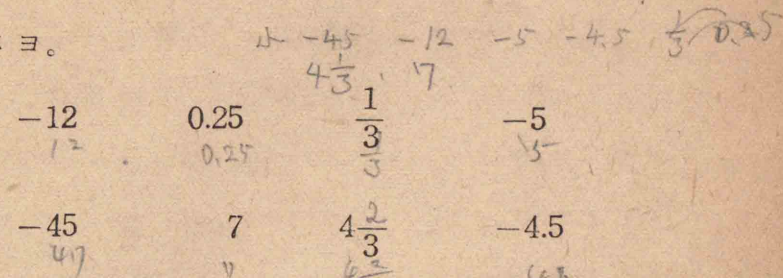 ヨ。 小 -45 -12 -5 -4.5 1/3 0.25
4 1/3, 7
-12 0.25 1/3 -5
12 0.25 5
-45 7 4 2/3 -4.5